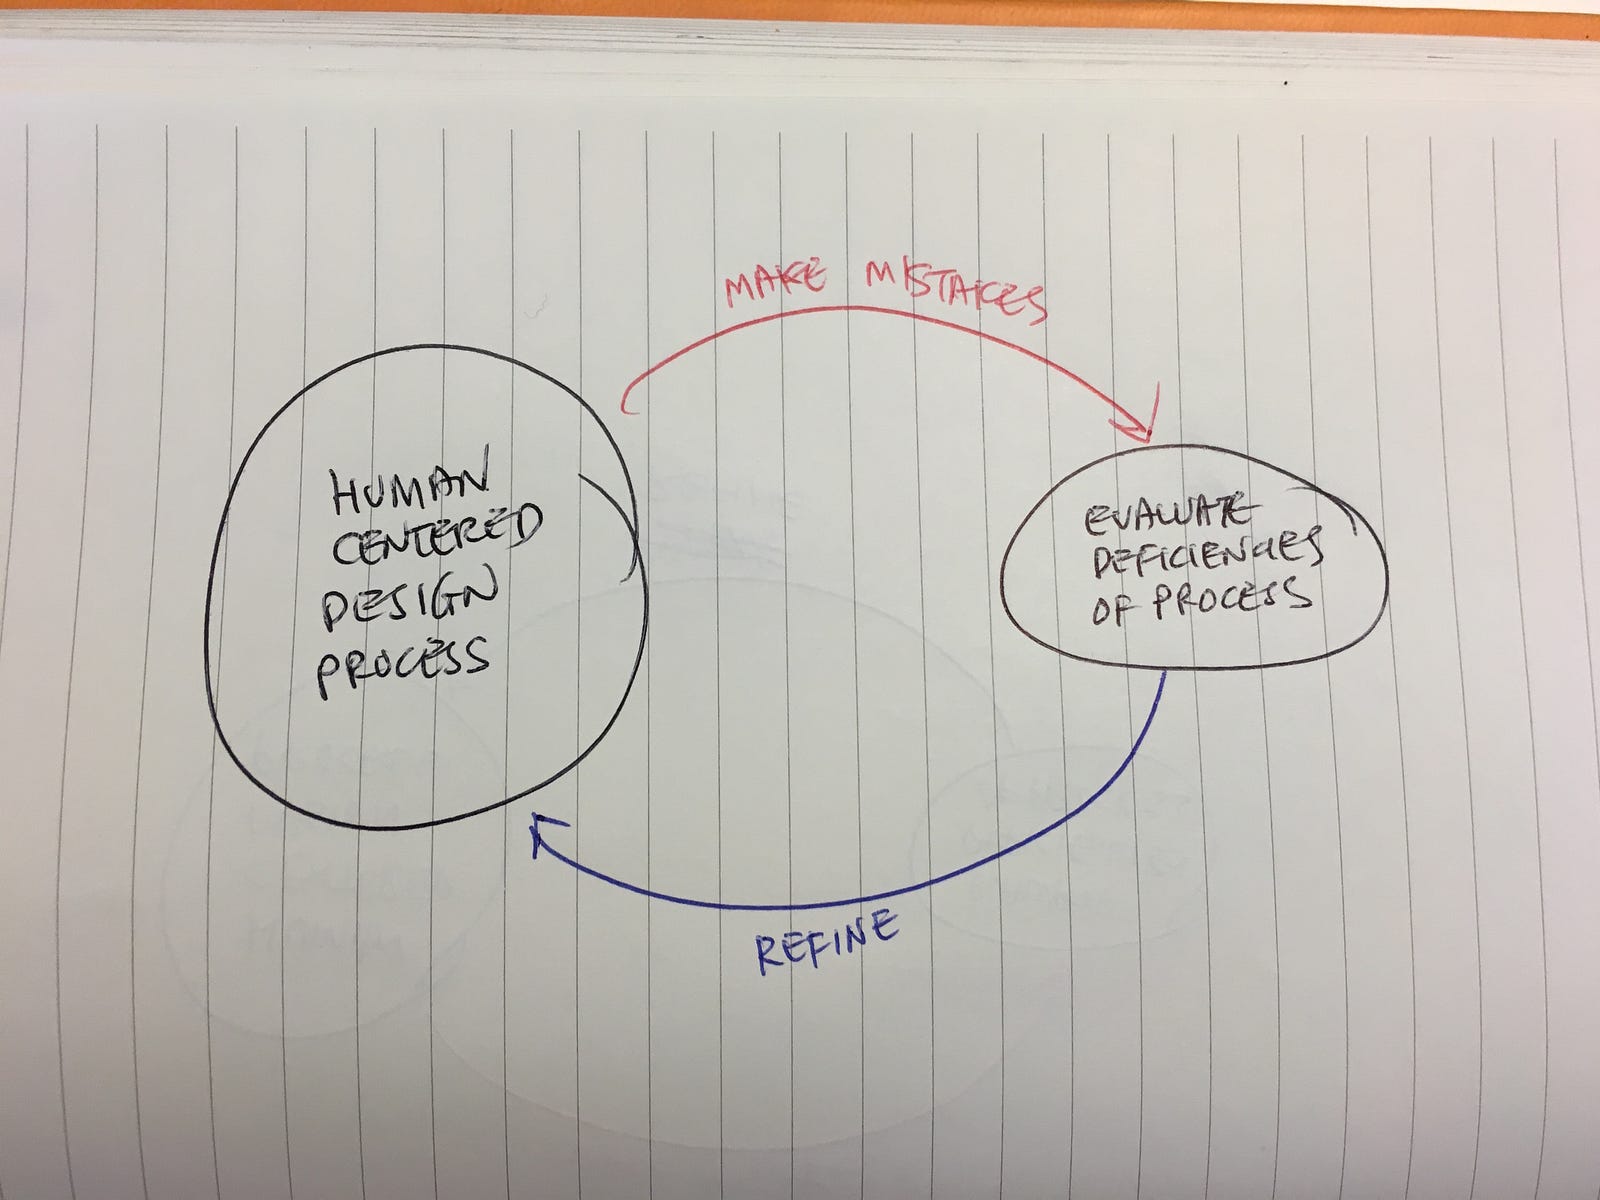 MAKE MISTAKES
HUMAN
CENTERED
DESIGN
PROCESS
EVALUATE
DEFICIENCIES
OF PROCESS
REFINE